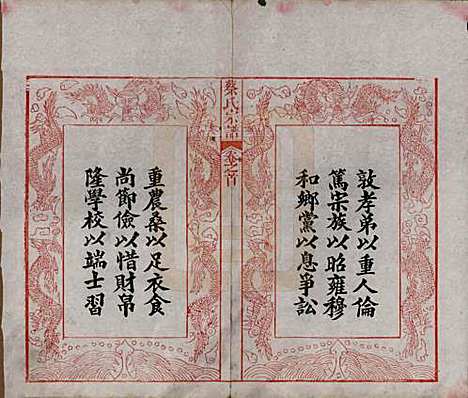 敦孝弟以重人倫
篤宗族以昭雍穆
和鄉黨以息爭訟
蔡氏宗譜
卷之首
重農桑以足衣食
尚節儉以惜財帛
隆學校以端士習